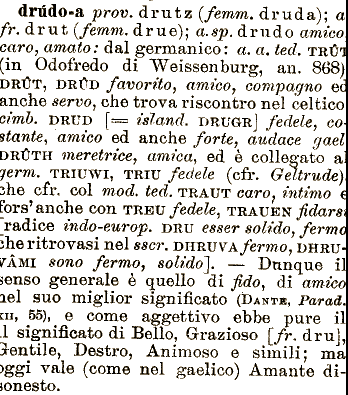 drúdo-a prov. drutz (femm. druda); a
fr. drut (femm. drue); a. sp. drudo amico
caro, amato: dal germanico: a. a. ted. TRÛT
(in Odofredo di Weissenburg, an. 868)
DRÛT, DRÛD favorito, amico, compagno ed
anche servo, che trova riscontro nel celtico
cimb. DRUD [= island. DRUGR] fedele, co-
stante, amico ed anche forte, audace gael
DRÛTH meretrice, amica, ed è collegato al
germ. TRIUWI, TRIU fedele (cfr. Geltrude)
che cfr. col mod. ted. TRAUT caro, intimo e
fors'anche con TREU fedele, TRAUEN fidarsi
radice indo-europ. DRU esser solido, fermo
che ritrovasi nel sscr. DHRUVA fermo, DHRU-
VÂMI sono fermo, solido]. — Dunque il
senso generale è quello di fido, di amico
nel suo miglior significato (DANTE, Parad.
XII, 55), e come aggettivo ebbe pure il
il significato di Bello, Grazioso [fr. dru],
Gentile, Destro, Animoso e simili; ma
oggi vale (come nel gaelico) Amante di-
sonesto.